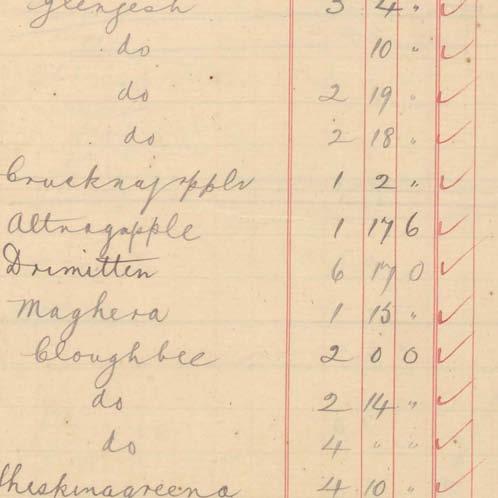 Glengesh 3 4 "
do 10 "
do 2 19 "
do 2 18 "
Crucknajopple 1 2 "
Altnagapple 1 17 6
Drimitten 6 17 0
Maghera 1 15 "
Cloughbee 2 0 0
do 2 14 "
do 4 " "
Sheskinagreena 4 10 "